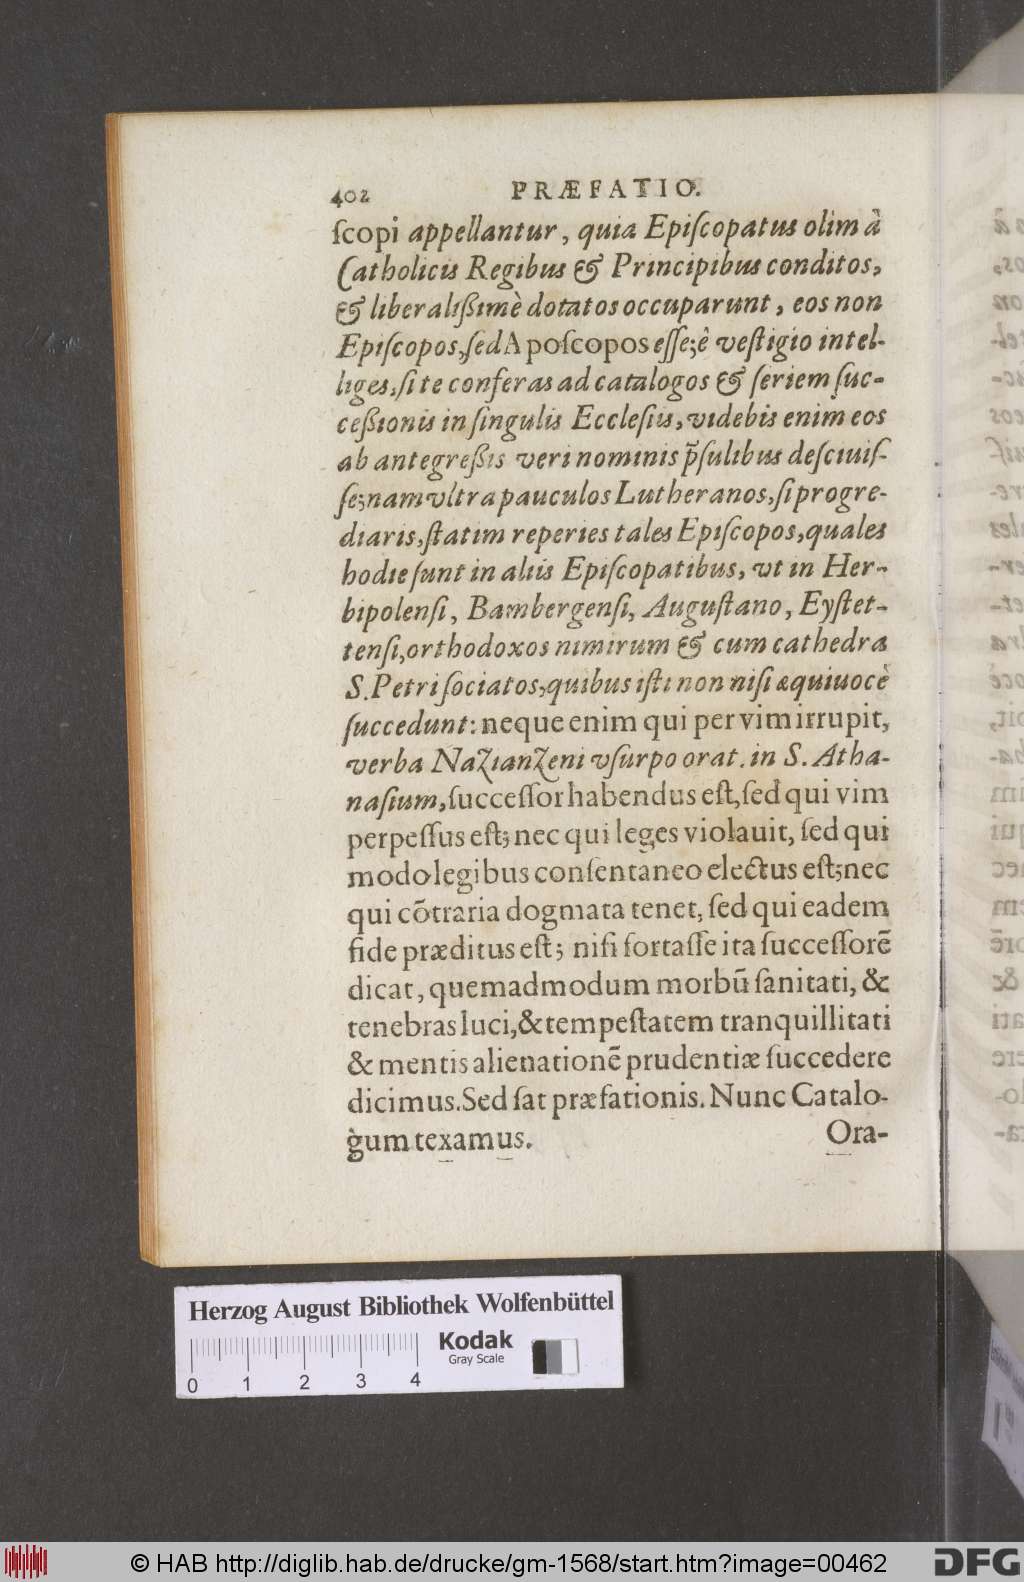 402 PRÆFATIO.
ſcopi appellantur, quia Epiſcopatus olim à
Catholicis Regibus & Principibus conditos,
& liberalißimè dotatos occuparunt, eos non
Epiſcopos, ſed Apoſcopos eſſe; è veſtigio intel-
liges, ſi te conferas ad catalogos & ſeriem ſuc-
ceßionis in ſingulis Eccleſiis, videbis enim eos
ab antegreßis veri nominis p̃ſulibus deſciuiſ-
ſe; nam vltra pauculos Lutheranos, ſi progre-
diaris, ſtatim reperies tales Epiſcopos, quales
hodie ſunt in aliis Epiſcopatibus, vt in Her-
bipolenſi, Bambergenſi, Auguſtano, Eyſtet-
tenſi, orthodoxos nimirum & cum cathedra
S. Petri ſociatos, quibus iſti non niſi æquiuocè
ſuccedunt: neque enim qui per vim irrupit,
verba Nazianzeni vſurpo orat. in S. Atha-
naſium, ſucceſſor habendus eſt, ſed qui vim
perpeſſus eſt; nec qui leges violauit, ſed qui
modo legibus conſentaneo electus eſt; nec
qui cõtraria dogmata tenet, ſed qui eadem
fide præditus eſt; niſi fortaſſe ita ſucceſſorẽ
dicat, quemadmodum morbũ ſanitati, &
tenebras luci, & tempeſtatem tranquillitati
& mentis alienationẽ prudentiæ ſuccedere
dicimus. Sed ſat præfationis. Nunc Catalo-
gum texamus. Ora-
Herzog August Bibliothek Wolfenbüttel
Kodak
Gray Scale
0 1 2 3 4
© HAB http://diglib.hab.de/drucke/gm-1568/start.htm?image=00462
DFG